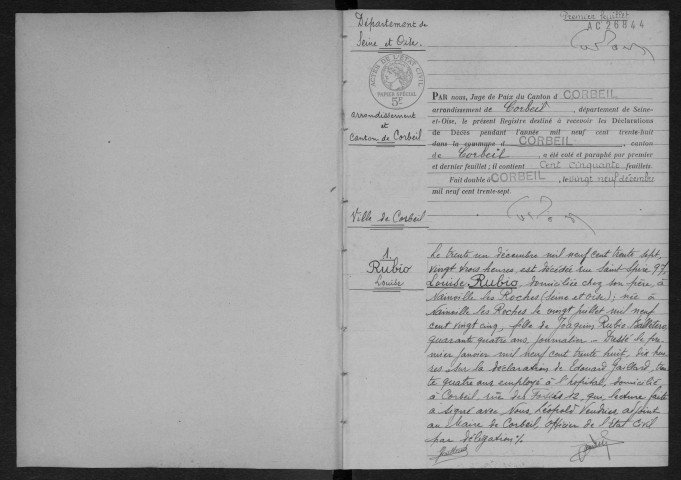 Premier feuillet
AC 26844
Département de
Seine et Oise.
ACTES DE L'ÉTAT CIVIL
PAPIER SPÉCIAL
5F
arrondissement
et
canton de Corbeil
PAR nous, Juge de Paix du Canton d CORBEIL
arrondissement de Corbeil, département de Seine-
et-Oise, le présent Registre destiné à recevoir les Déclarations
de Décès pendant l'année mil neuf cent trente-huit
dans la commune d CORBEIL, canton
de Corbeil, a été coté et paraphé par premier
et dernier feuillet; il contient Cent cinquante feuillets
Fait double à CORBEIL, le vingt neuf décembre
mil neuf cent trente-sept.
Ville de Corbeil
1.
Rubio
Louise
Le trente un décembre mil neuf cent trente sept,
vingt trois heures, est décédée rue Saint-Spire 97,
Louise Rubio, domiciliée chez son père, à
Nainville les Roches (Seine et Oise); née à
Nainville les Roches le vingt juillet mil neuf
cent vingt cinq, fille de Joaquim Rubio
quarante quatre ans, journalier. - Dressé le pre-
mier janvier mil neuf cent trente huit, dix heu-
res sur la déclaration de Edouard Gaillard, tren-
te quatre ans employé à l'hôpital, domicilié
à Corbeil rue des Fossés 12, qui, lecture faite
a signé avec Nous, Léopold adjoint
au Maire de Corbeil Officier de l'Etat Civil
par délégation